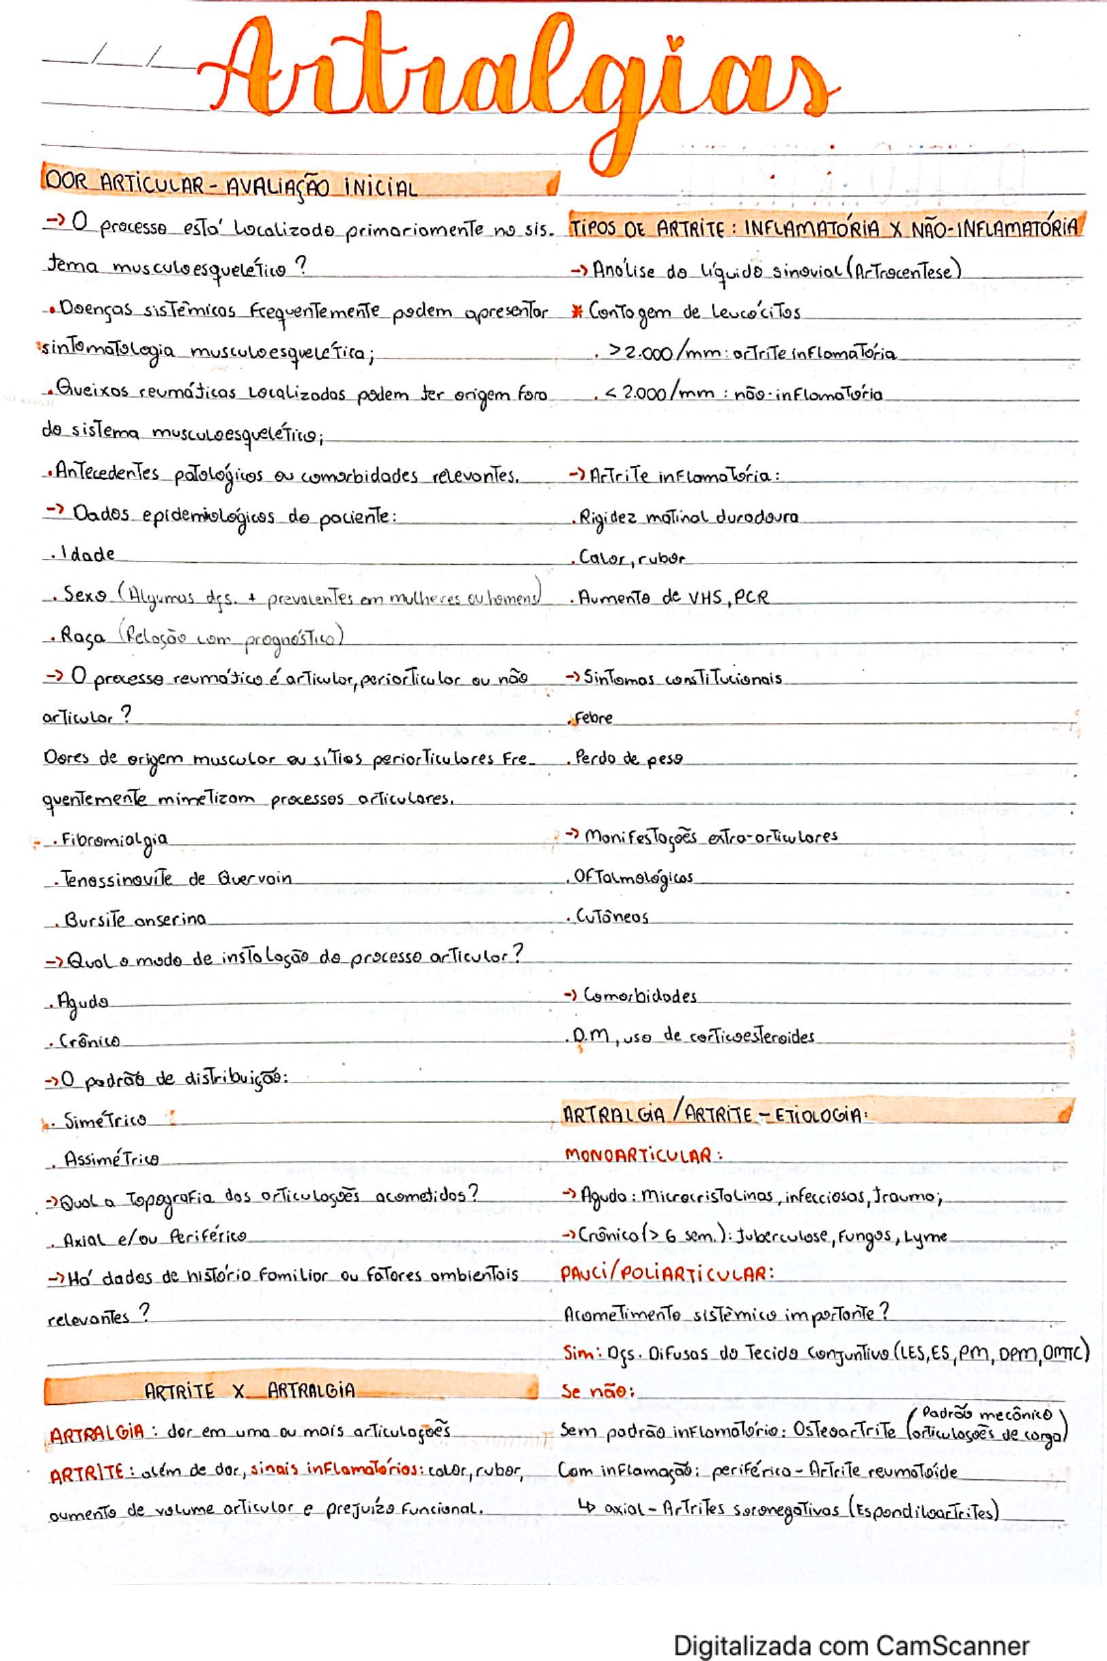 Artralgias
DOR ARTICULAR - AVALIAÇÃO INICIAL
-> O processo está localizado primariamente no sis-
tema musculoesquelético?
. Doenças sistêmicas frequentemente podem apresentar
sintomatologia musculoesquelética;
. Queixas reumáticas localizadas podem ter origem fora
do sistema musculoesquelético;
. Antecedentes patológicos ou comorbidades relevantes.
-> Dados epidemiológicos do paciente:
. Idade
. Sexo (Algumas dçs. + prevalentes em mulheres ou homens)
. Raça (Relação com prognóstico)
-> O processo reumático é articular, periarticular ou não
articular?
Dores de origem muscular ou sítios periarticulares fre-
quentemente mimetizam processos articulares.
. Fibromialgia
. Tenossinovite de Quervain
. Bursite anserina
-> Qual o modo de instalação do processo articular?
. Agudo
. Crônico
-> O padrão de distribuição:
. Simétrico
. Assimétrico
-> Qual a topografia das articulações acometidas?
. Axial e/ou Periférico
-> Há dados de histório familiar ou fatores ambientais
relevantes?
ARTRITE X ARTRALGIA
ARTRALGIA: dor em uma ou mais articulações
ARTRITE: além de dor, sinais inflamatórios: calor, rubor,
aumento de volume articular e prejuízo funcional.
TIPOS DE ARTRITE: INFLAMATÓRIA X NÃO-INFLAMATÓRIA
-> Análise do líquido sinovial (Artrocentese)
* Contagem de leucócitos
. > 2.000/mm: artrite inflamatória
. < 2.000/mm: não-inflamatória
-> Artrite inflamatória:
. Rigidez matinal duradoura
. Calor, rubor
. Aumento de VHS, PCR
-> Sintomas constitucionais
. Febre
. Perda de peso
-> Manifestações extra-articulares
. Oftalmológicas
. Cutâneas
-> Comorbidades
. D.M, uso de corticoesteroides
ARTRALGIA/ARTRITE - ETIOLOGIA:
MONOARTICULAR:
-> Aguda: Microcristalinas, infecciosas, trauma;
-> Crônica (> 6 sem.): Tuberculose, Fungos, Lyme
PAUCI/POLIARTICULAR:
Acometimento sistêmico importante?
Sim: Dçs. Difusas do Tecido Conjuntivo (LES, ES, PM, DPM, DMTC)
Se não:
Sem padrão inflamatório: Osteoartrite (Padrão mecânico
articulações de carga)
Com inflamação: periférica - Artrite reumatoide
↳ axial - Artrites soronegativas (Espondiloartrites)
Digitalizada com CamScanner